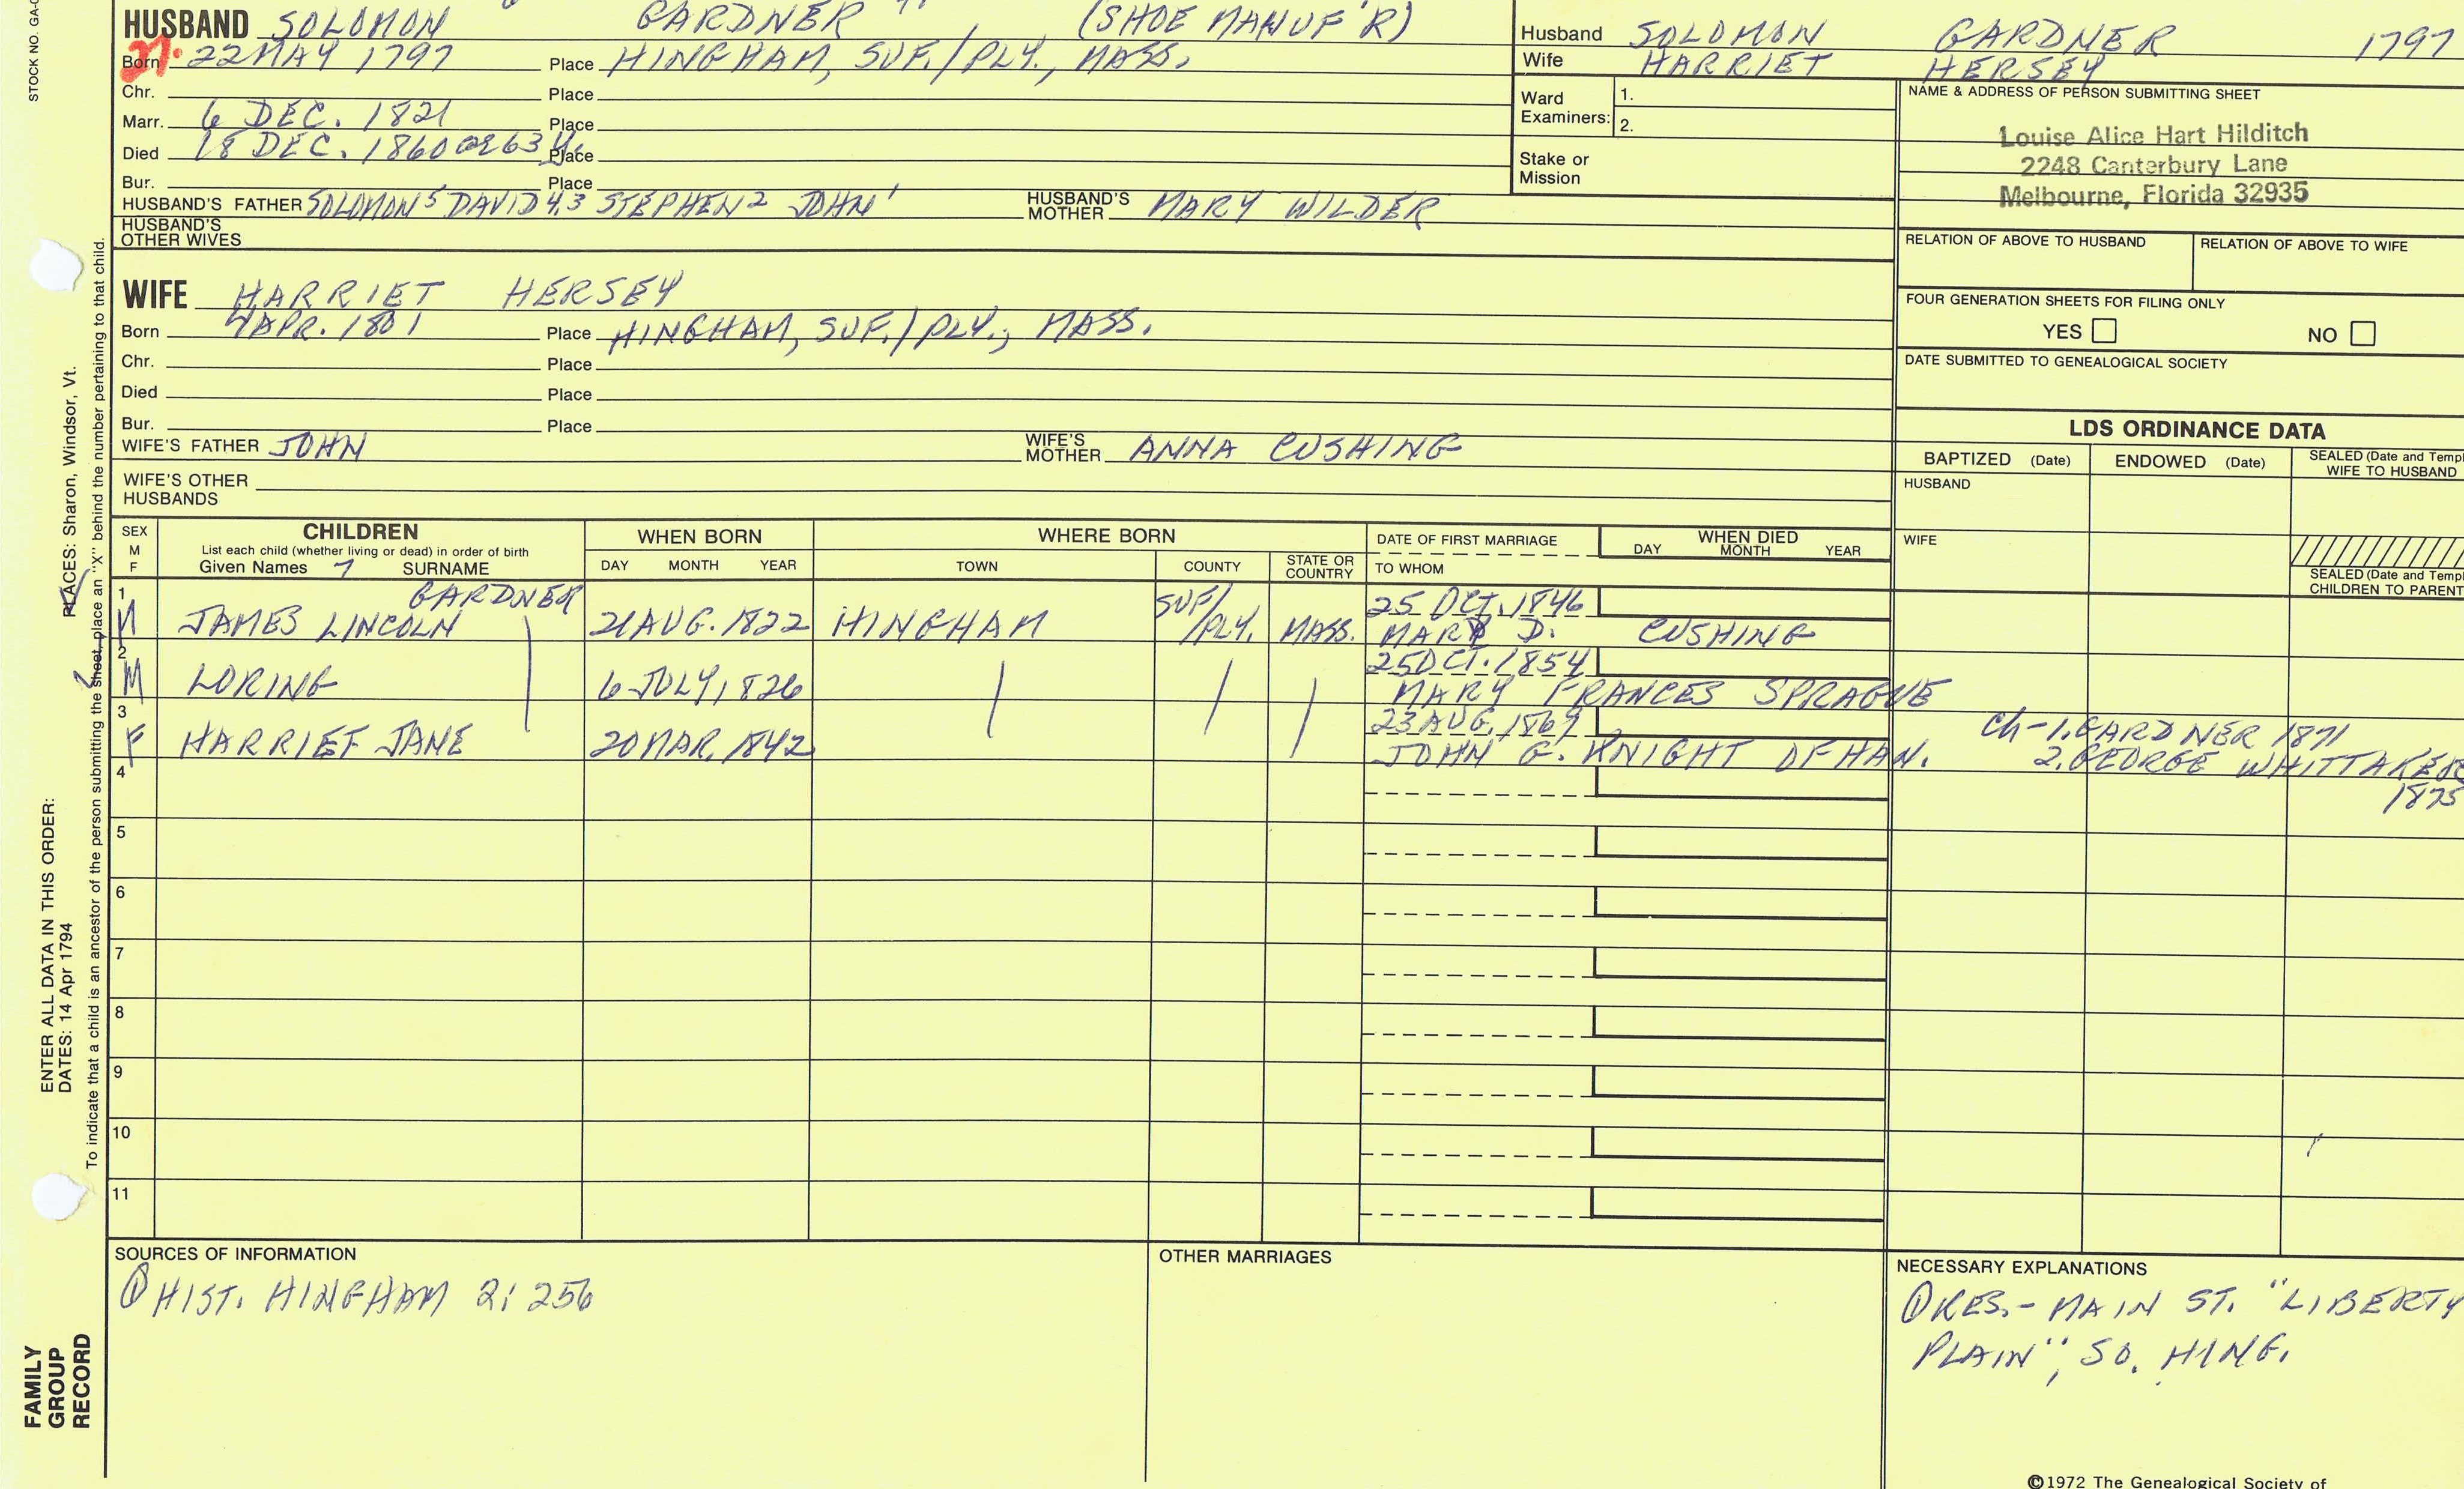 STOCK NO. GA-
HUSBAND SOLOMON GARDNER (SHOE MANUF'R)
Born 22 MAY 1797 Place HINGHAM, SUF./PLY., MASS.
Chr. Place
Marr. 6 DEC. 1821 Place
Died 18 DEC. 1860 Æ 63 Y. Place
Bur. Place
HUSBAND'S FATHER SOLOMON 5 DAVID 4,3 STEPHEN 2 JOHN 1 HUSBAND'S MOTHER MARY WILDER
HUSBAND'S OTHER WIVES
WIFE HARRIET HERSEY
Born 4 APR. 1801 Place HINGHAM, SUF./PLY., MASS.
Chr. Place
Died Place
Bur. Place
WIFE'S FATHER JOHN WIFE'S MOTHER ANNA CUSHING
WIFE'S OTHER HUSBANDS
Husband SOLOMON GARDNER 1797
Wife HARRIET HERSEY
Ward Examiners: 1.
2.
Stake or Mission
NAME & ADDRESS OF PERSON SUBMITTING SHEET
Louise Alice Hart Hilditch
2248 Canterbury Lane
Melbourne, Florida 32935
RELATION OF ABOVE TO HUSBAND RELATION OF ABOVE TO WIFE
FOUR GENERATION SHEETS FOR FILING ONLY
YES NO
DATE SUBMITTED TO GENEALOGICAL SOCIETY
LDS ORDINANCE DATA
BAPTIZED (Date) ENDOWED (Date) SEALED (Date and Templ
WIFE TO HUSBAND
HUSBAND
WIFE
SEALED (Date and Templ
CHILDREN TO PARENT
SEX M F CHILDREN WHEN BORN WHERE BORN DATE OF FIRST MARRIAGE WHEN DIED
List each child (whether living or dead) in order of birth
Given Names SURNAME DAY MONTH YEAR TOWN COUNTY STATE OR COUNTRY TO WHOM DAY MONTH YEAR
1 GARDNER SUF/ 25 OCT. 1846
M JAMES LINCOLN 21 AUG. 1822 HINGHAM /PLY. MASS. MARY D. CUSHING
2 25 OCT. 1854
M LORING 6 JULY 1826 MARY FRANCES SPRAGUE
3 23 AUG. 1869 Ch-1. GARDNER 1871
F HARRIET JANE 20 MAR. 1842 JOHN G. KNIGHT OF HAN. 2. GEORGE WHITTAKER
4 1875
5
6
7
8
9
10
11
SOURCES OF INFORMATION
① HIST. HINGHAM 2: 256
OTHER MARRIAGES
NECESSARY EXPLANATIONS
① RES. - MAIN ST. "LIBERTY
PLAIN", SO. HING.
©1972 The Genealogical Society of
PLACES: Sharon, Windsor, Vt.
To indicate that a child is an ancestor of the person submitting the sheet, place an "X" behind the number pertaining to that child.
ENTER ALL DATA IN THIS ORDER:
DATES: 14 Apr 1794
FAMILY
GROUP
RECORD